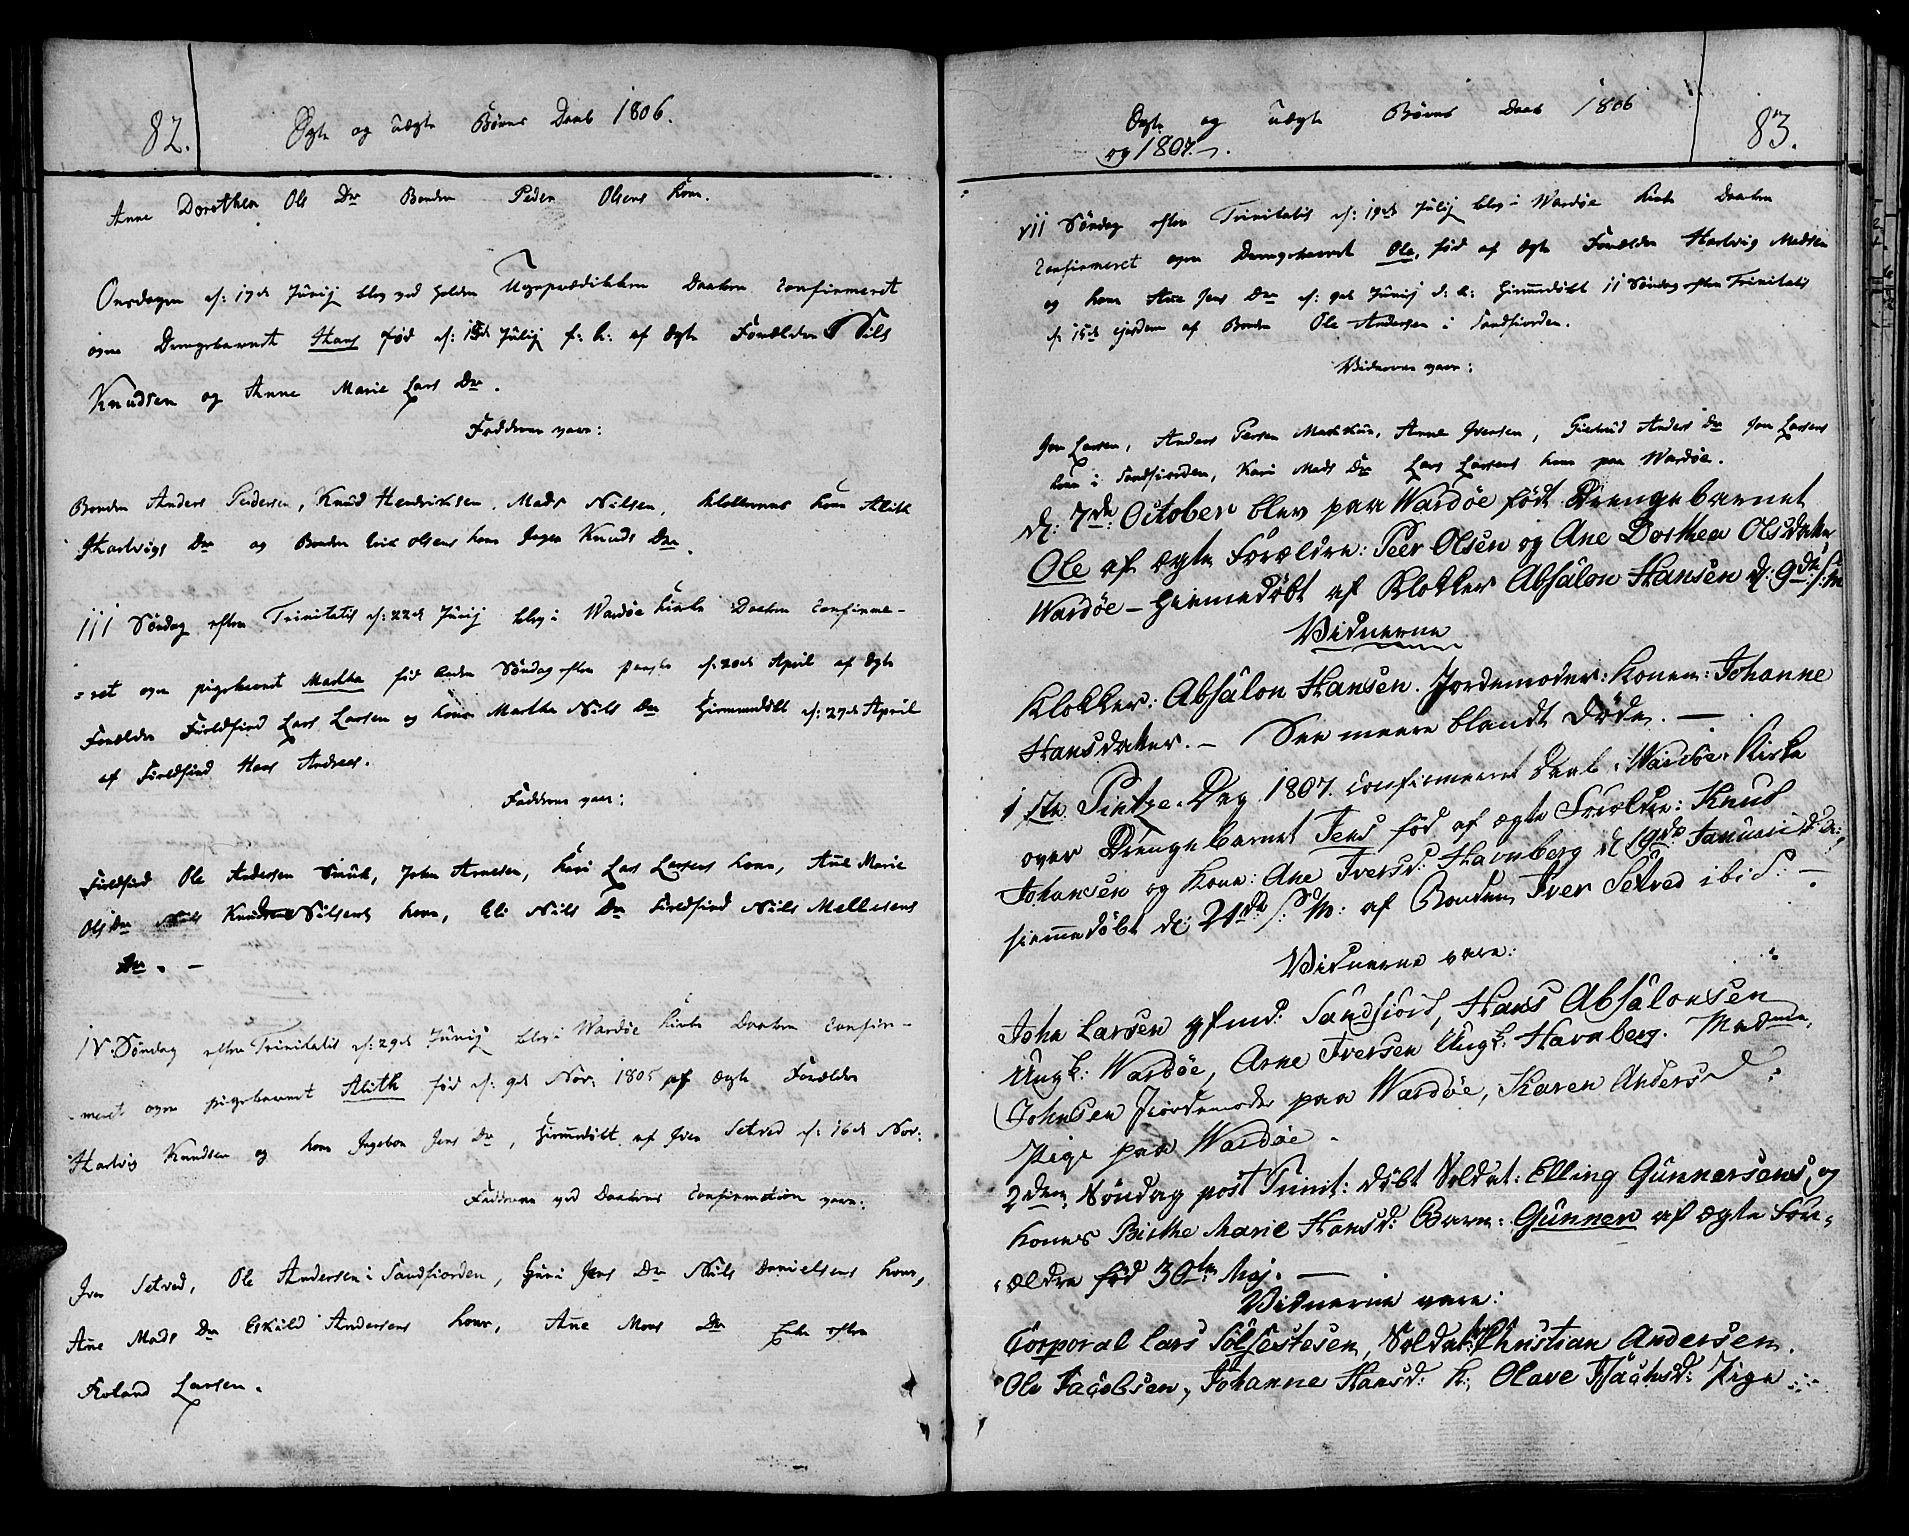 82.
Ægte og uægte Børns Daab 1806.
Anne Dorothea Ols Dr Bonden Peder Olsens kone.
Onsdagen d: 17de Junij blev ved holden Ugeprædikken Daaben Confirmeret
over Drengebarnet Hans fød d: 15de Julij f: A: af Ægte Forældre Nils
Knudsen og Anne Marie Lars Dr.
Faddere vare:
Bonden Anders Pedersen, Knud Hendriksen, Mads Nilsen, klokkerens kone Alith
Hartvigs Dr og Bonden Erik Olsens kone Inger Knuds Dr.
III Søndag efter Trinitatis d: 22de Junij blev i Wardøe kirke Daaben Confirme-
=ret over pigebarnet Martha fød anden Søndag efter paaske d: 20de April af Ægte
Forældre Fieldfind Lars Larsen og kone Martha Nils Dr Hiemmedøbt d: 27de April
af Fieldfind Hans Andreas.
Faddere vare:
Fieldfind Ole Andersen Smuk, John Arnesen, Kari Lars Larsens kone, Ane Marie
Ols Dr Nils Knudsens kone, Eli Nils Dr Fieldfind Nils Mellesens
Dr. -
IV. Søndag efter Trinitatis d: 29de Junij blev i Wardøe kirke Daaben Confir-
-meret over pigebarnet Alith fød d: 9de Nov: 1805 af Ægte Forældre
Hartvig Knudsen og kone Ingebor Jens Dr, Hiemmedøbt af Iver Setved d: 16de Nov:
Fadderne ved Daabens Confirmation vare:
Iver Setved, Ole Andersen i Sandfiorden, Guri Jens Dr Nils Danielsens kone,
Ane Mads Dr Eskild Andersens kone, Ane Mons Dr Enke efter
Roland Larsen.
Ægte og uægte Børns Daab 1806
og 1807.
83.
VII Søndag efter Trinitatis d: 19de Julij blev i Wardøe kirke Daaben
Confirmeret over Drengebarnet Ole, fød af Ægte Forældre Hartvig Madsen
og kone Ane Jens Dr d: 9de Junij d: A: Hiemmedøbt II Søndag efter Trinitatis
d: 15de ejusdem af Bonden Ole Andersen i Sandfiorden.
Vidnerne vare:
Jon Larsen, Anders Persen Makkur, Arne Iversen, Giertrud Anders Dr Jon Larsens
kone i Sandfiorden, Kari Mads Dr Lars Larsens kone paa Wardøe.
d: 7de October blev paa Wardøe født Drengebarnet
Ole af ægte Forældre: Peer Olsen og Ane Dorthea Olsdatter
Wardøe - Hiemedøbt af Klokker Absalon Hansen d: 9de s: M
Vidnerne
Klokker: Absalon Hansen. Jordemoder: Konen: Johanne
Hansdatter. - See meere blandt Døde. -
1ste Pintze-Dag 1807. confirmeret Daab i Wardøe Kirke
over Drengebarnet Jens fød af ægte Forældre: Knud
Johansen og Kone: Ane Iversd: Havnberg d 19de Januarii d: A:
hiemmedøbt d: 21de s: M: af Bonden Iver Setved ibid: -
Vidnerne vare:
John Larsen gfmd: Sandfiord, Hans Absalonsen
Ungk: Wardøe, Arne Iversen Ungk: Havnberg. Madme,
Johnsen Jiordemoder paa Wardøe, Karen Andersd:
Pige paa Wardøe -
2den Søndag post Trinit: døbt Soldat: Elling Gunnersens, og
Kones Birthe Marie Hansd: Barn: Gunner af ægte For-
-ældre fød 30te Maj. -
Vidnerne vare:
Corporal Lars Sølfestesen, Soldat: Christian Andersen.
Ole Jacobsen, Johanne Hansd: k: Olave Isachsd: Pige